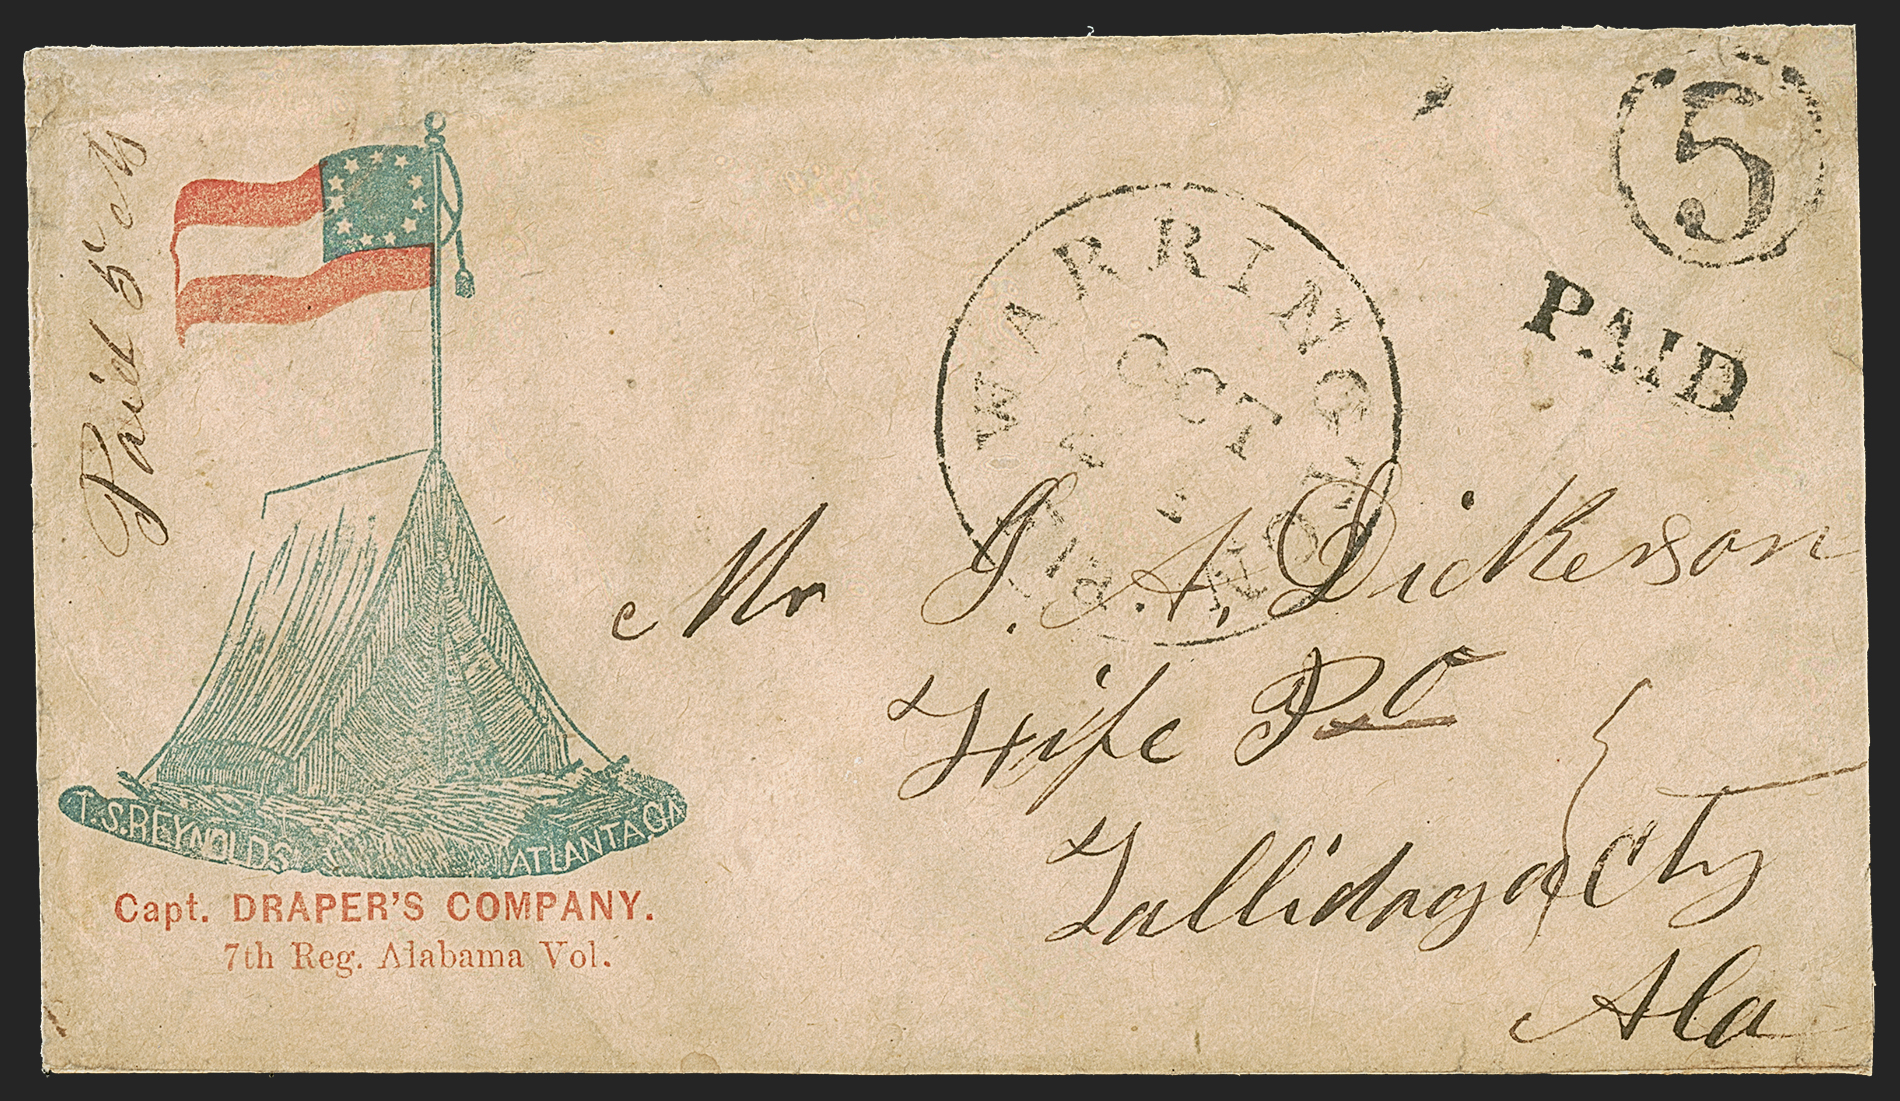 Paid 5 cts
5
PAID
WARRINGTON
OCT
Mr J. A. Dickerson
Fife P O
Talladaga Cty
Ala
T.S. REYNOLDS
ATLANTA GA
Capt. DRAPER'S COMPANY.
7th Reg. Alabama Vol.